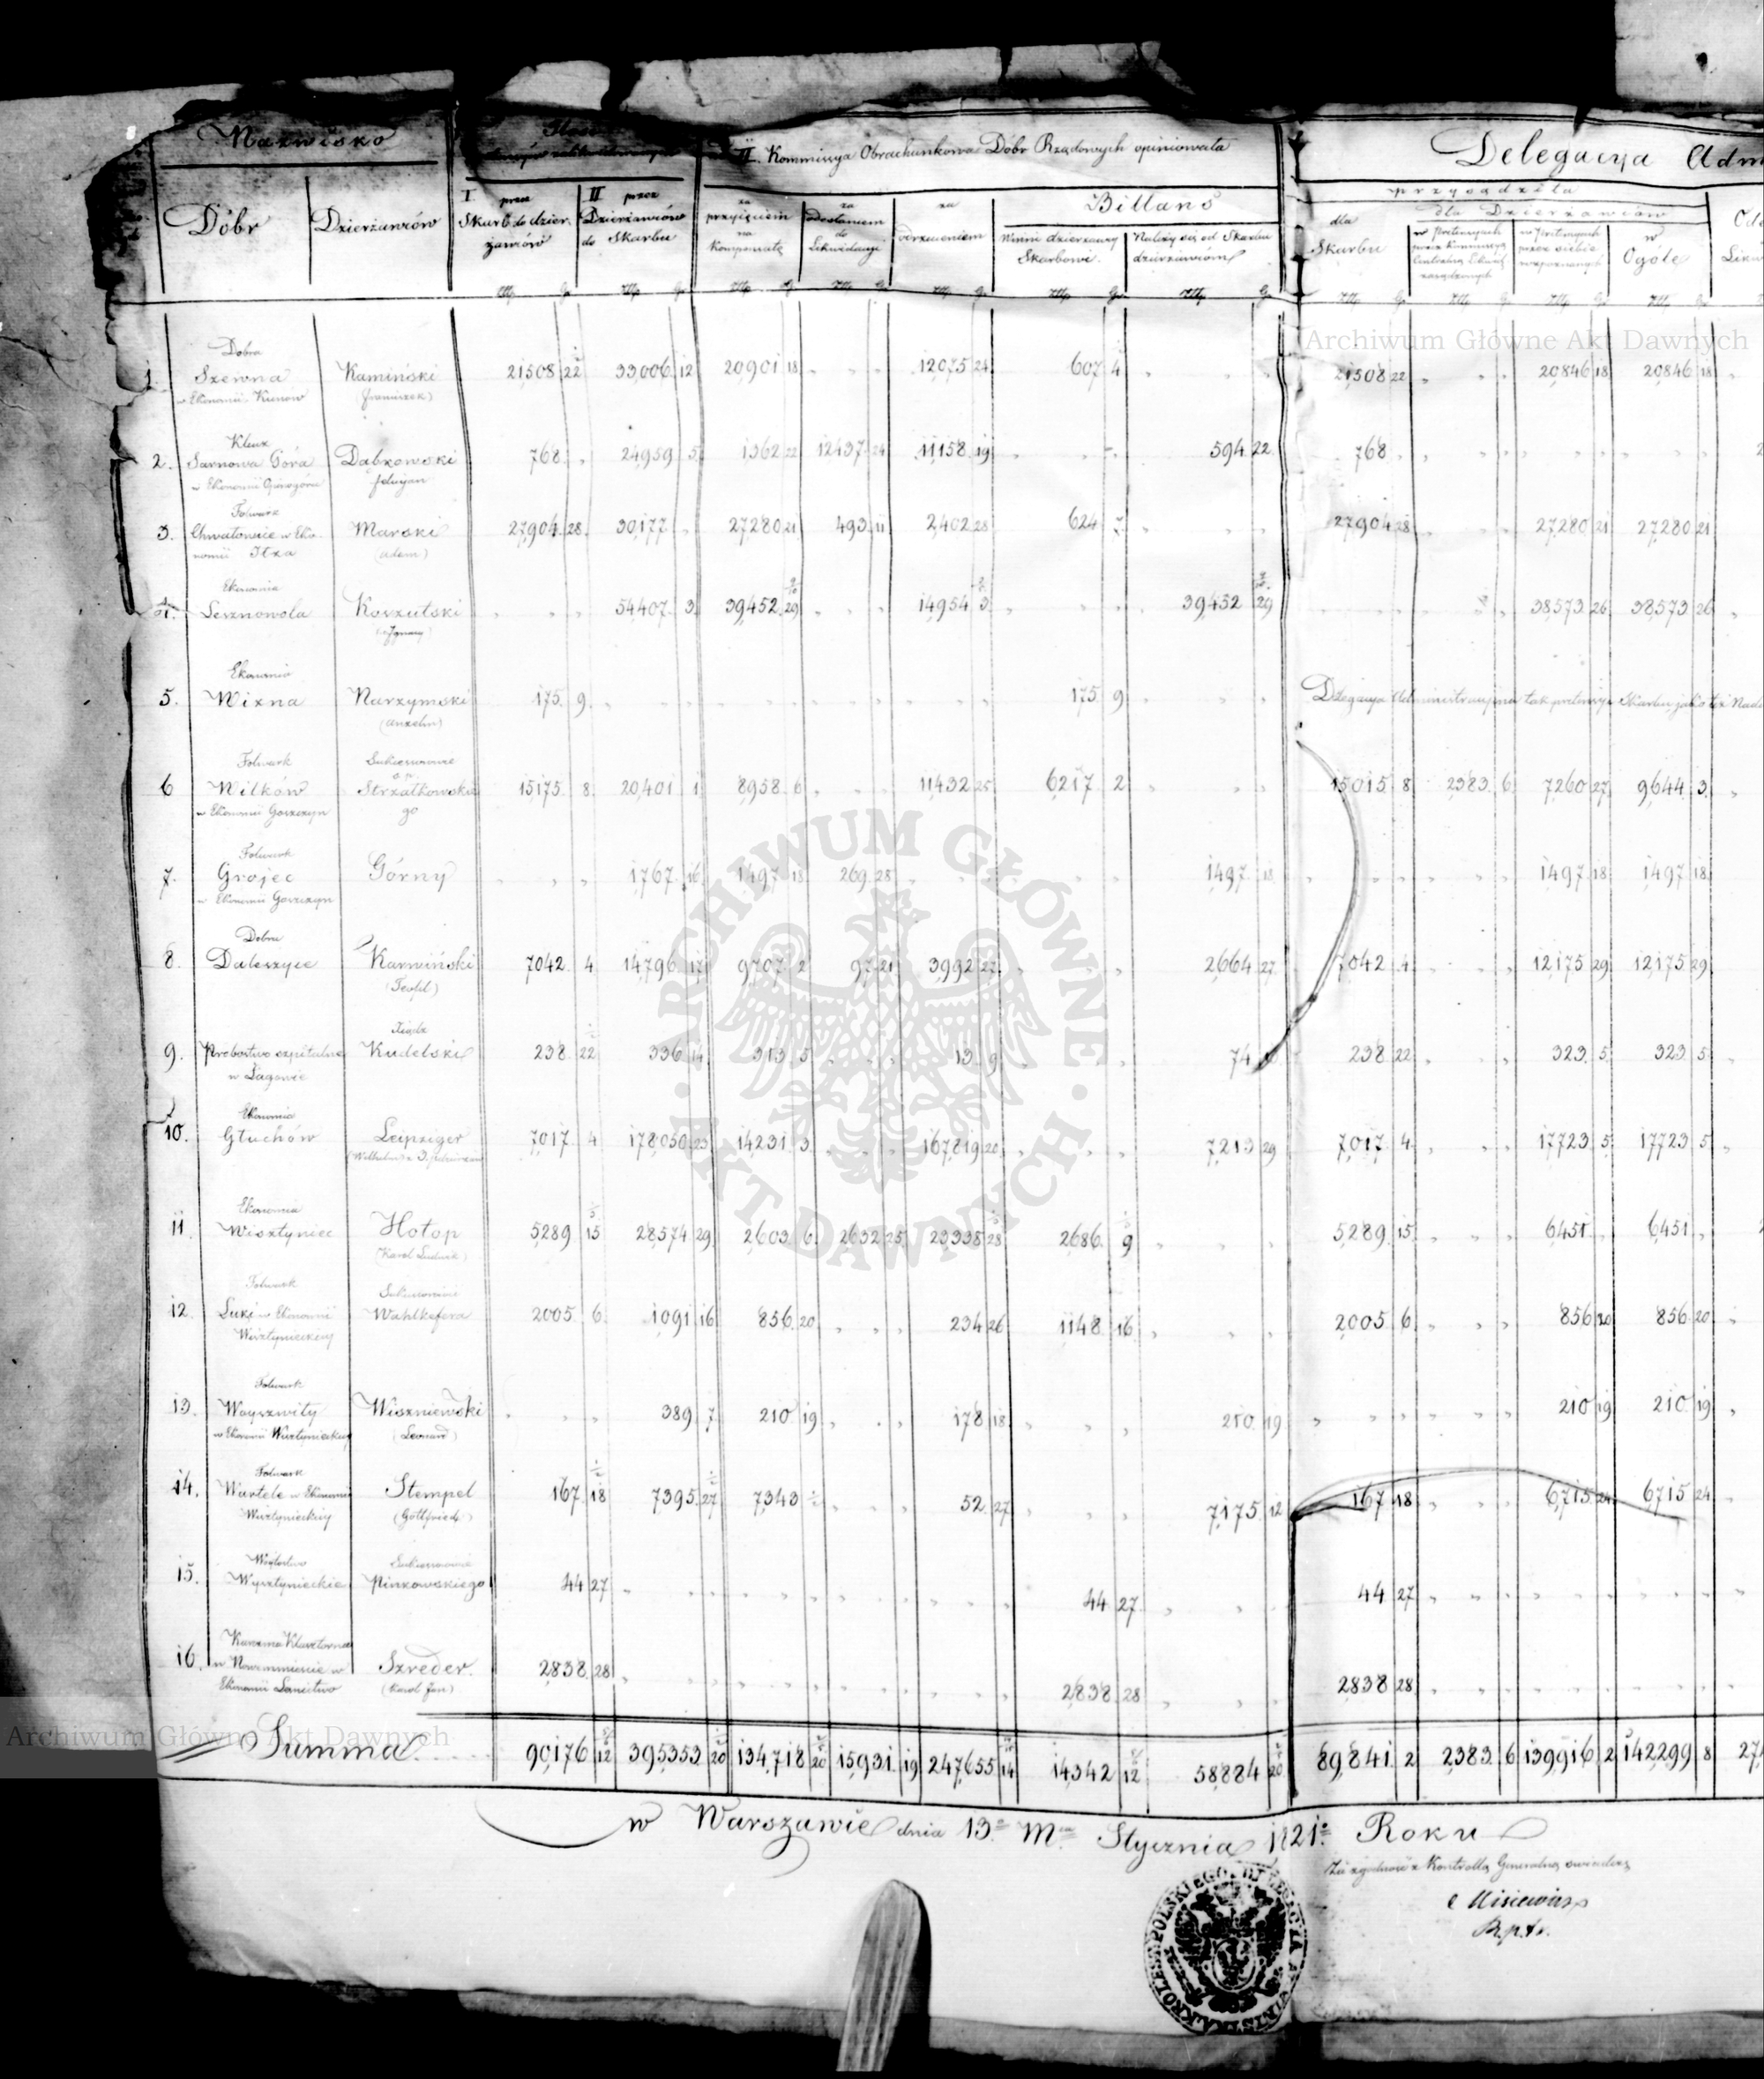 Nazwisko
II. Kommissya Obrachunkowa Dóbr Rządowych opiniowała
Delegacya Adm
przysądziła
Dóbr Dzierżawców
I przez Skarb do dzierżawców
II przez Dzierżawców do Skarbu
za przyjęciem na Kompensatę
za odesłaniem do Likwidacyi
za odrzuceniem
Billans
Winni dzierżawcy Skarbowi
Należy się od Skarbu dzierżawcom
dla Skarbu
dla Dzierżawców
w Ogóle
Złp Gr
Archiwum Główne Akt Dawnych
1 Dobra Szewna w Ekonomii Kunow Kamiński (Franciszek) 21508 22 33006 12 20901 18 12075 24 607 4 21508 22 20846 18 20846 18
2. Klucz Sarnowa Góra w Ekonomii Opinogóra Dąbrowski Felicyan 768 24959 5 1362 22 12437 24 11158 19 594 22 768
3. Folwark Chwałowice w Ekonomii Iłża Marski (Adam) 27904 28 30177 27280 21 493 11 2402 28 624 7 27904 28 27280 21 27280 21
4. Ekonomia Lesznowola Korzutski (Ignacy) 54407 3 39452 29 14954 3 39452 29 38573 26 38573 26
5. Ekonomia Wizna Narzymski (Anzelm) 175 9 175 9 Delegacya Administracyina tak pretensye Skarbu jako też Nad
6 Folwark Wilków w Ekonomii Goszczyn Sukcessorowie Strzałkowskiego 15175 8 20401 1 8958 6 11432 25 6217 2 15015 8 2383 6 7260 27 9644 3
7. Folwark Grojec w Ekonomii Goszczyn Górny 1767 16 1497 18 269 28 1497 18 1497 18 1497 18
8. Dobra Daleszyce Karwiński (Teofil) 7042 4 14796 17 9707 2 97 21 3992 27 2664 27 7042 4 12175 29 12175 29
9. Probostwo szpitalne w Łagowie Xiądz Kudelski 238 22 336 14 313 5 13 9 74 238 22 323 5 323 5
10. Ekonomia Głuchów Leipziger 7017 4 178050 23 14231 3 167819 20 7213 29 7017 4 17723 5 17723 5
11. Ekonomia Wisztyniec Hotop (Karol Ludwik) 5289 15 28574 29 2603 6 2632 25 23338 28 2686 9 5289 15 6451 6451
12. Folwark Łuki w Ekonomii Wisztynieckiey Sukcessorowie Wahlkefera 2005 6 1091 16 856 20 234 26 1148 16 2005 6 856 20 856 20
13. Folwark Wayszwiły w Ekonomii Wisztynieckiey Wiszniewski (Leonard) 389 7 210 19 178 18 210 19 210 19 210 19
14. Folwark Wartele w Ekonomii Wisztynieckiey Stempel (Gottfried) 167 18 7395 27 7343 52 27 7175 12 167 18 6715 24 6715 24
15. Wóytostwo Wysztynieckie Sukcessorowie Pinkowskiego 44 27 44 27 44 27
16. Karczma Klasztorna w Nowemmieście w Ekonomii Szreder (Karol Jan) 2838 28 2838 28 2838 28
Archiwum Główne Akt Dawnych
Summa 90176 12 395353 20 134718 20 15931 19 247655 14 14342 12 58884 20 89841 2 2383 6 139916 2 142299 8
w Warszawie dnia 13 Mca Stycznia 1821 Roku
Za zgodność z Kontrollą Generalną swiadczę
ARCHIWUM GŁÓWNE AKT DAWNYCH